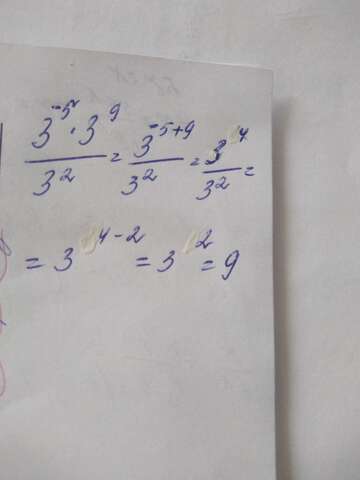 3^-5 · 3^9 / 3^2 = 3^-5+9 / 3^2 = 3^4 / 3^2 =
= 3^4-2 = 3^2 = 9